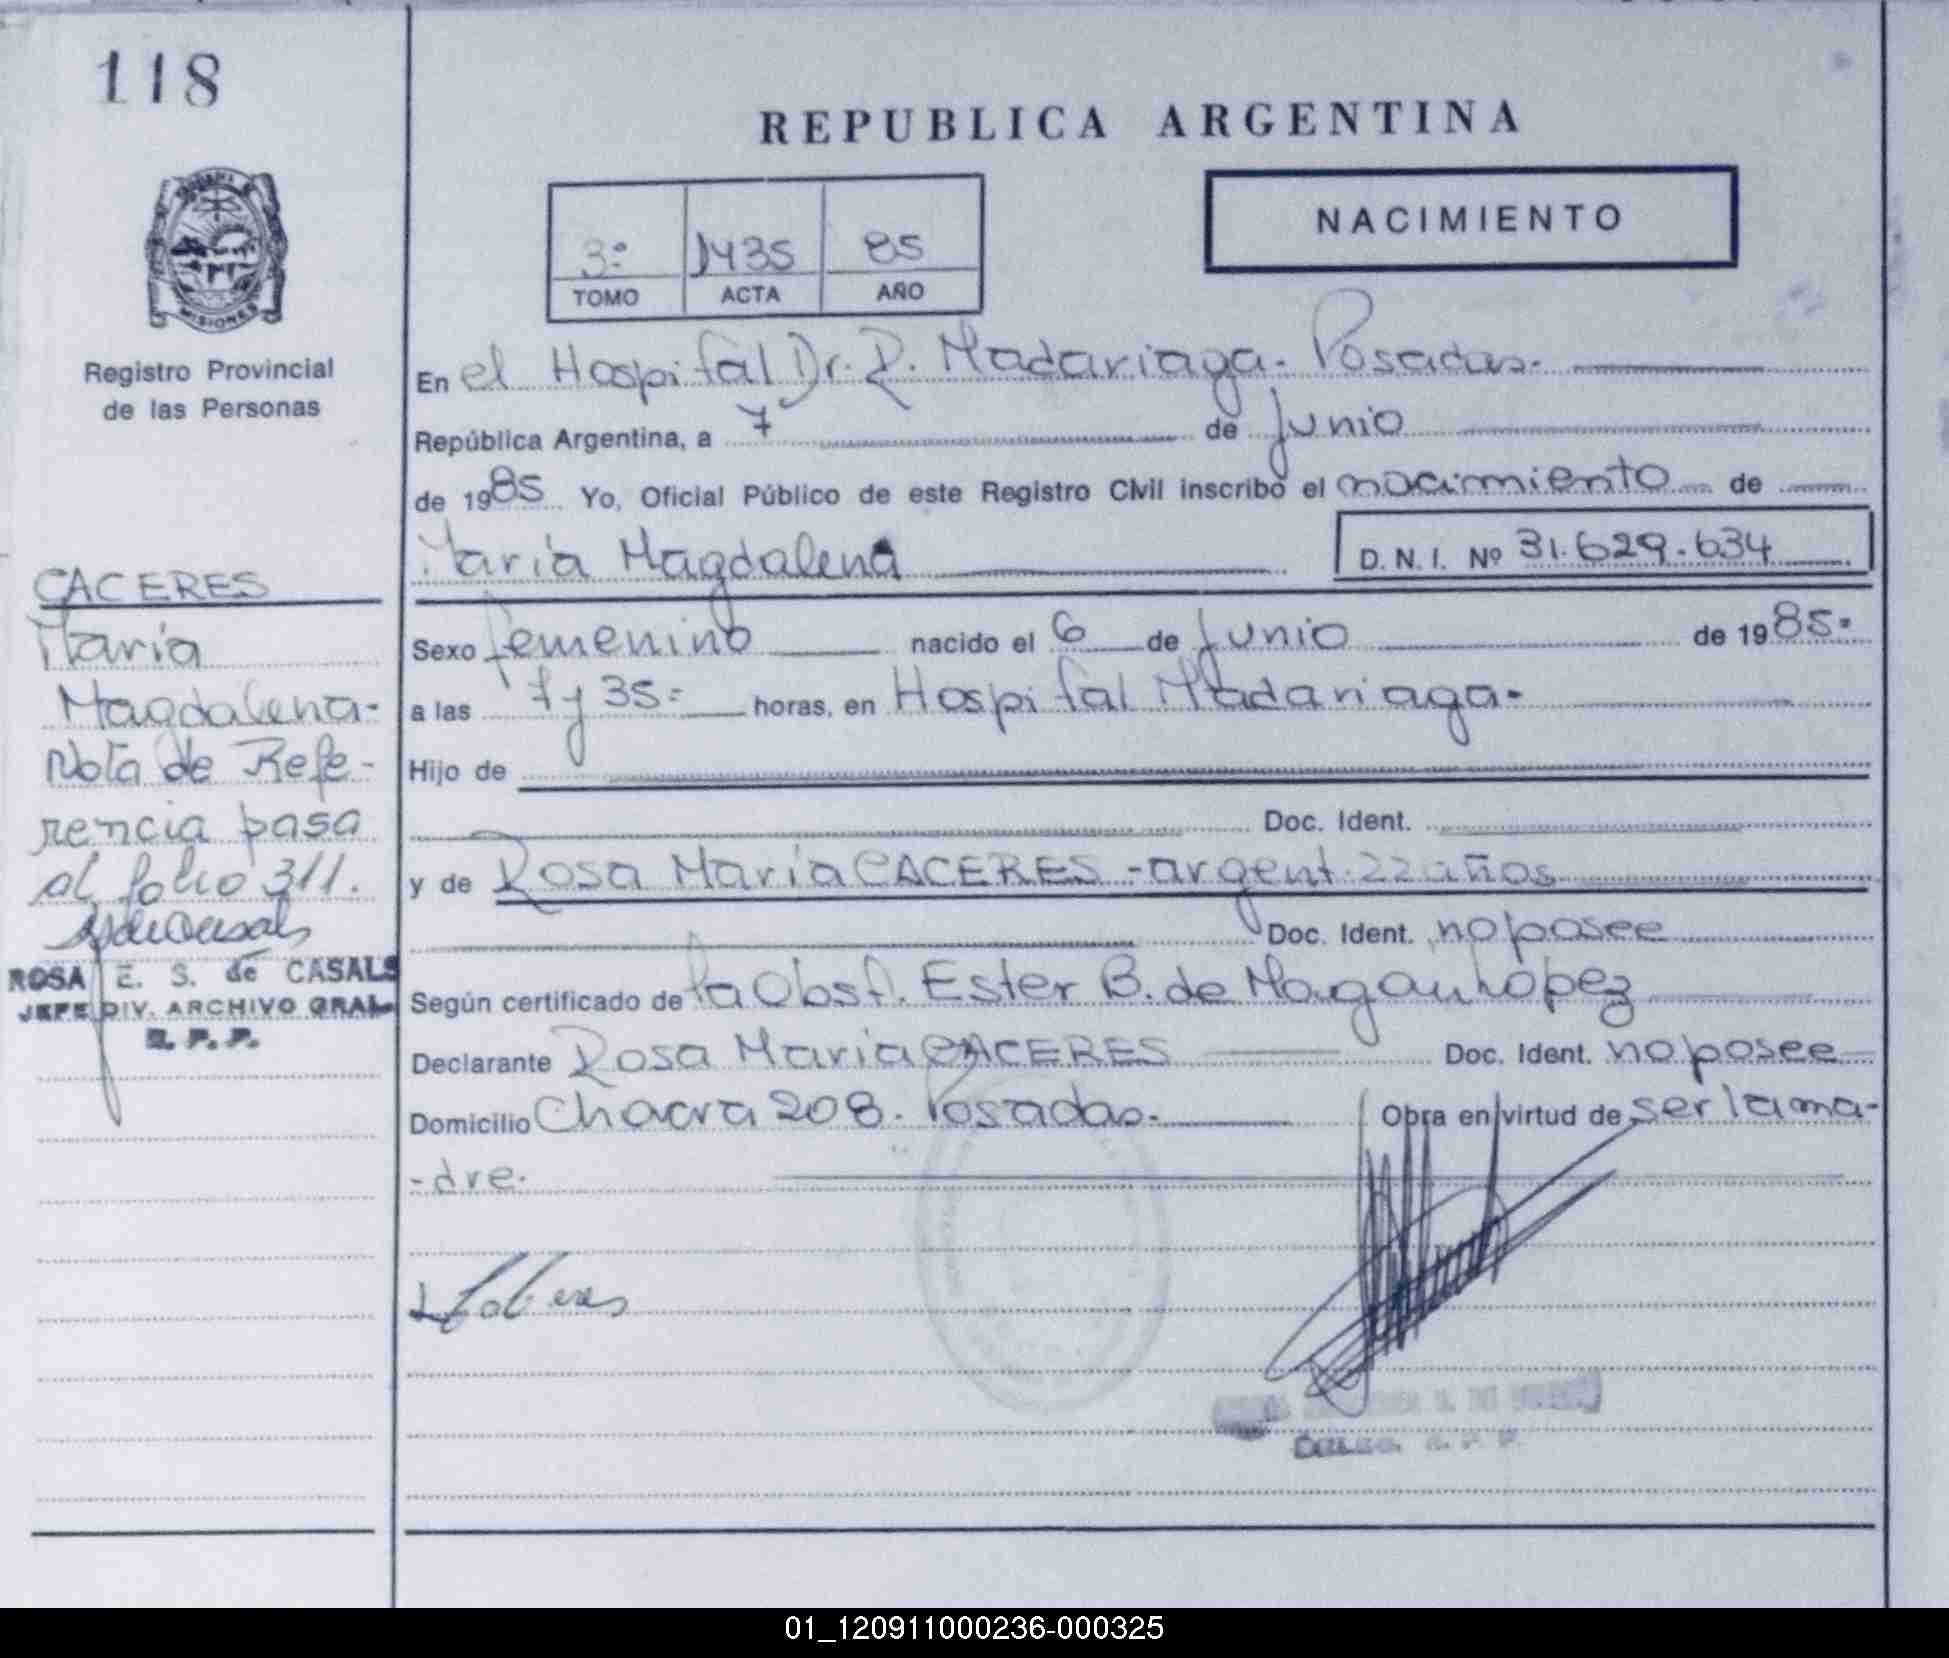 118
REPUBLICA ARGENTINA
NACIMIENTO
3º 1435 85
TOMO ACTA AÑO
MISIONES
Registro Provincial
de las Personas
En el Hospital Dr. R. Madariaga. Posadas.
República Argentina, a 7 de Junio
de 1985 Yo, Oficial Público de este Registro Civil inscribo el nacimiento de
María Magdalena D.N.I. Nº 31.629.634
Sexo femenino nacido el 6 de Junio de 1985=
a las 7 y 35= horas, en Hospital Madariaga.
Hijo de
Doc. Ident.
y de Rosa María CACERES - argent. 22 años
Doc. Ident. no posee
Según certificado de la Obst. Ester B. de
Declarante Rosa María CACERES Doc. Ident. no posee
Domicilio Chacra 208. Posadas. Obra en virtud de ser la ma-
-dre.
CACERES
María
Magdalena-
Nota de Refe-
rencia pasa
al folio 311.
ROSA E. S. de CASALS
JEFE DIV. ARCHIVO GRAL.
R. P. P.
01_120911000236-000325